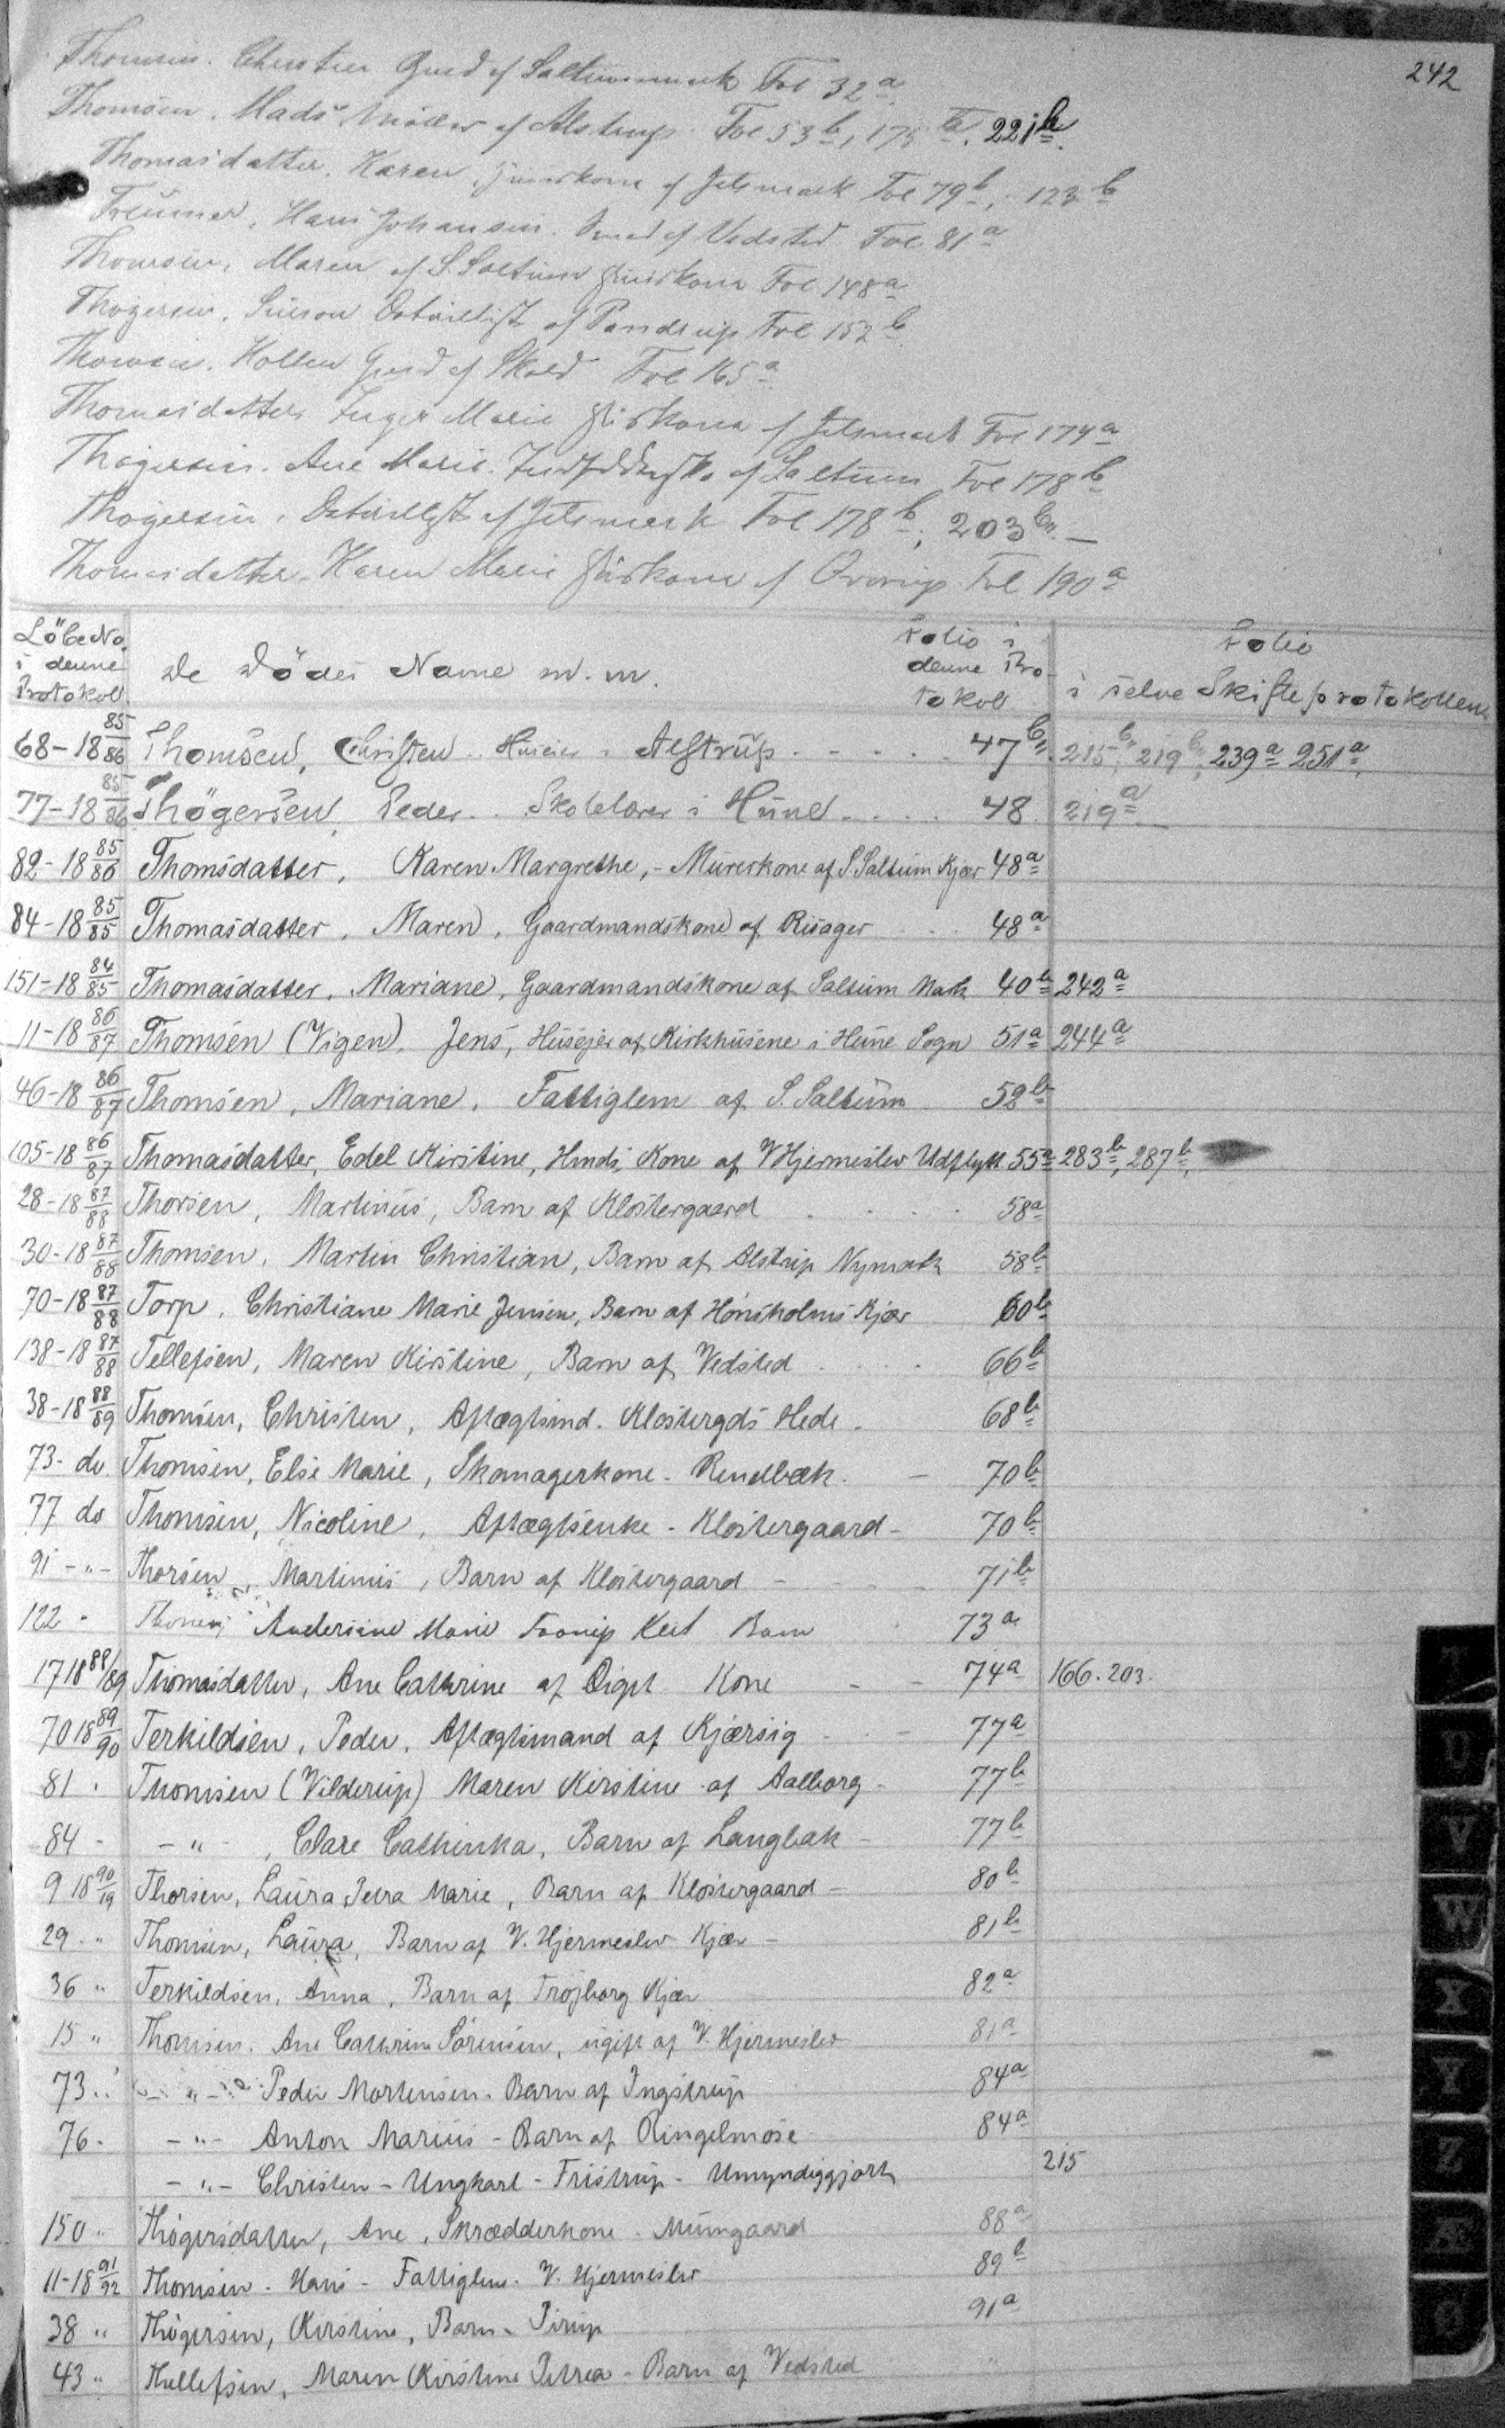 242
Thomsen. Christen Gmd af Saltummark Fol 32a
Thomsen. Mads Möller af Alstrup. Fol 53b, 175 221b.
Thomasdatter. Karen, Huuskone af Jetsmark Fol 79b, 123b
Hans Johansen. Smed af Vedsted Fol 81a
Thomsen, Maren af S. Saltum Huuskone Fol 148a
Thögersen. Simon af Pandrup Fol 152b
Thomsen. Gmd af Fol 165a
Thomasdatter Inger Marie af Jetsmark Fol 174a
Thögersen. Ane Marie. af Saltum Fol 178b
Thögersen. af Jetsmark Fol 178b, 203b. —
Thomasdatter. Karen Marie af Fol 190a
LöbeNo. i denne Protokol.
De Dödes Name m. m.
Folio i denne Protokol
Folio i selve Skifteprotokollen
68-18 85/86 Thomsen, Christen Alstrup - - - - 47b 215b, 219b, 239a 251a,
77-18 85/86 Thögersen, Peder. Skolelærer i Hune - - - 48 219a
82-18 85/86 Thomsdatter, Karen Margrethe, - Murerkone af S Saltum Kjær 48a
84-18 85/85 Thomasdatter, Maren, Gaardmandskone af Risager 48a
151-18 84/85 Thomasdatter, Mariane, Gaardmandskone af Saltum Mark 40b 242a
11-18 86/87 Thomsen (Vigen). Jens, Husejer af Kirkhusene i Hune Sogn 51a 244a
46-18 86/87 Thomsen, Mariane, Fattiglem af S. Saltum 52b
105-18 86/87 Thomasdatter, Edel Kirstine, Hmds Kone af VHjermeslev Udflytt 55a 283b, 287b,
28-18 87/88 Thorsen, Martinus, Barn af Klostergaard 58a
30-18 87/88 Thomsen, Martin Christian, Barn af Alstrup Nymark 58b
70-18 87/88 Torp, Christiane Marie Jensen, Barn af Hönsholms Kjær 60b
138-18 87/88 Tellefsen, Maren Kirstine, Barn af Vedsted 66b
38-18 88/89 Thomsen, Christen, Aftægtsmd. Klostergds Hede - 68b
73- do. Thomsen, Else Marie, Skomagerkone - Rendbæk. - 70b
77 do Thomsen, Nicoline, Aftægtsenke - Klostergaard - 70b
91 - " - Thorsen, Martinus, Barn af Klostergaard - 71b
122 " Thomsen Andersine Marie Barn 73a
17 18 88/89 Thomasdatter, Ane Cathrine af Diget Kone - - 74a 166. 203.
70 18 89/90 Terkildsen, Peder, Aftægtsmand af Kjærsig - 77a
81 " Thomsen (Vilderup) Maren Kirstine af Aalborg - 77b
84 - - " - , Clare Cathinka, Barn af Langbak - 77b
9 18 90/19 Thorsen, Laura Petra Marie, Barn af Klostergaard - 80b
29 " Thomsen, Laura, Barn af V. Hjermeslev Kjær - 81b
36 " Terkildsen, Anna, Barn af Tröjborg Kjær 82a
15 " Thomsen. Ane Cathrine Sörensen, ugift af V. Hjermeslev 81a
73 " - " - Peder Mortensen - Barn af Ingstrup 84a
76 - - " - Anton Marius - Barn af Ringelmose 84a
- " - Christen - Ungkarl - Fristrup - Umyndiggjort 215
150 " Thögersdatter, Ane, Skrædderkone - Mumgaard 88a
11-18 91/92 Thomsen - Hans - Fattiglem - V. Hjermeslev 89b
38 " Thögersen, Kirstine, Barn - Pirup 91a
43 " Thellefsen, Maren Kirstine Petrea - Barn af Vedsted "
T
U
V
W
X
Y
Z
Æ
Ø